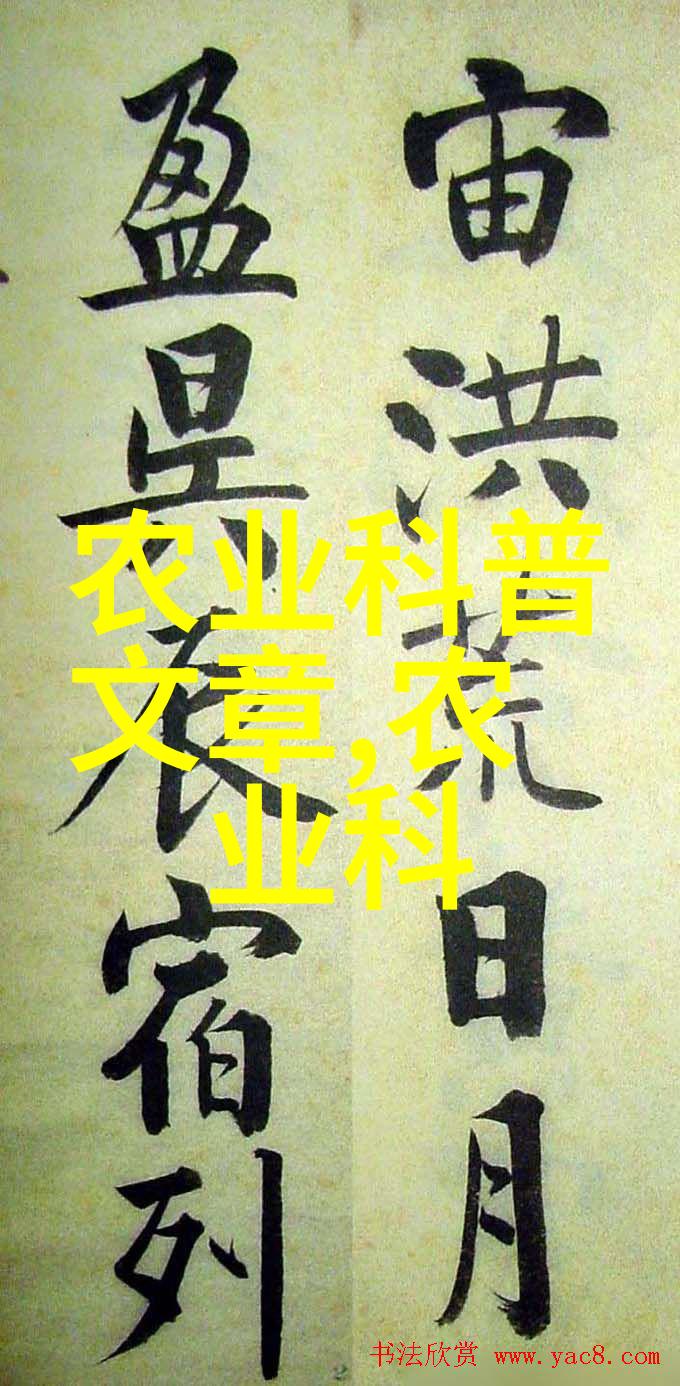 宙洪荒日月
盈昃辰宿列
农业科普
文章,农
业科
书法欣赏 www.yac8.com